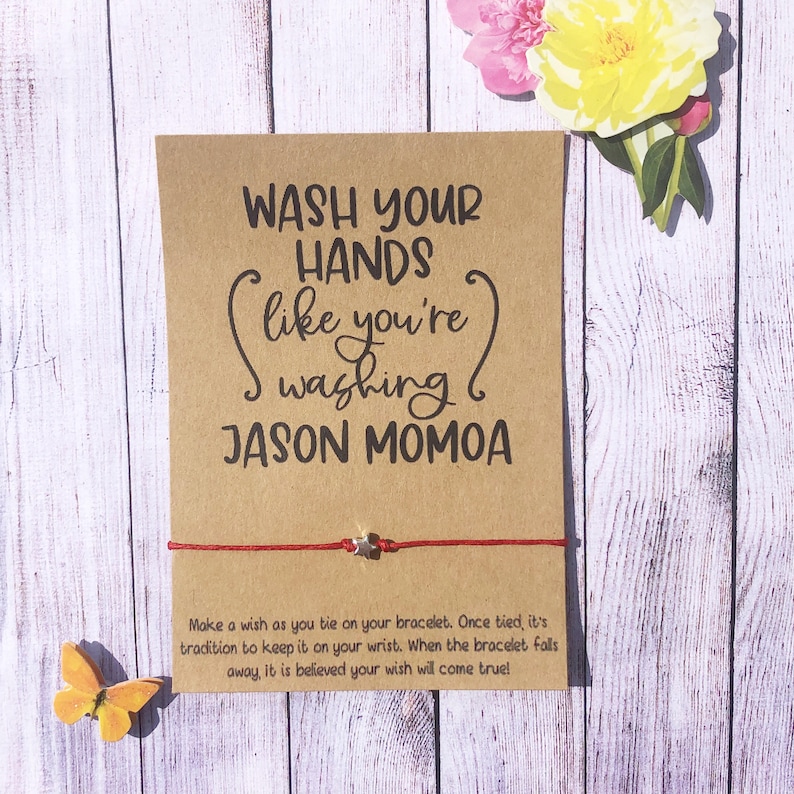 WASH YOUR
HANDS
like you're
washing
JASON MOMOA
Make a wish as you tie on your bracelet. Once tied, it's
tradition to keep it on your wrist. When the bracelet falls
away, it is believed your wish will come true!